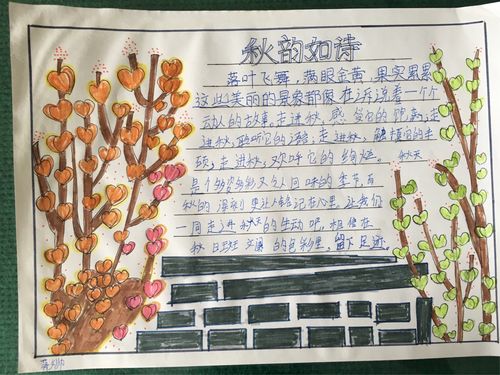 秋韵如诗
落叶飞舞，满眼金黄，果实累累
这些美丽的景象都像在诉说着一个个
动人的故事。走进秋，感受它的
进秋，聆听它的语；走进秋，触摸它的手
走进秋，欢呼它的绚烂。
秋天
是个多姿多彩又令人回味的季节，有
秋的深刻更让人铭记在心里，让我们
一同走进秋天的生动吧，相信在
秋日斑斓的色彩里，留下足迹。